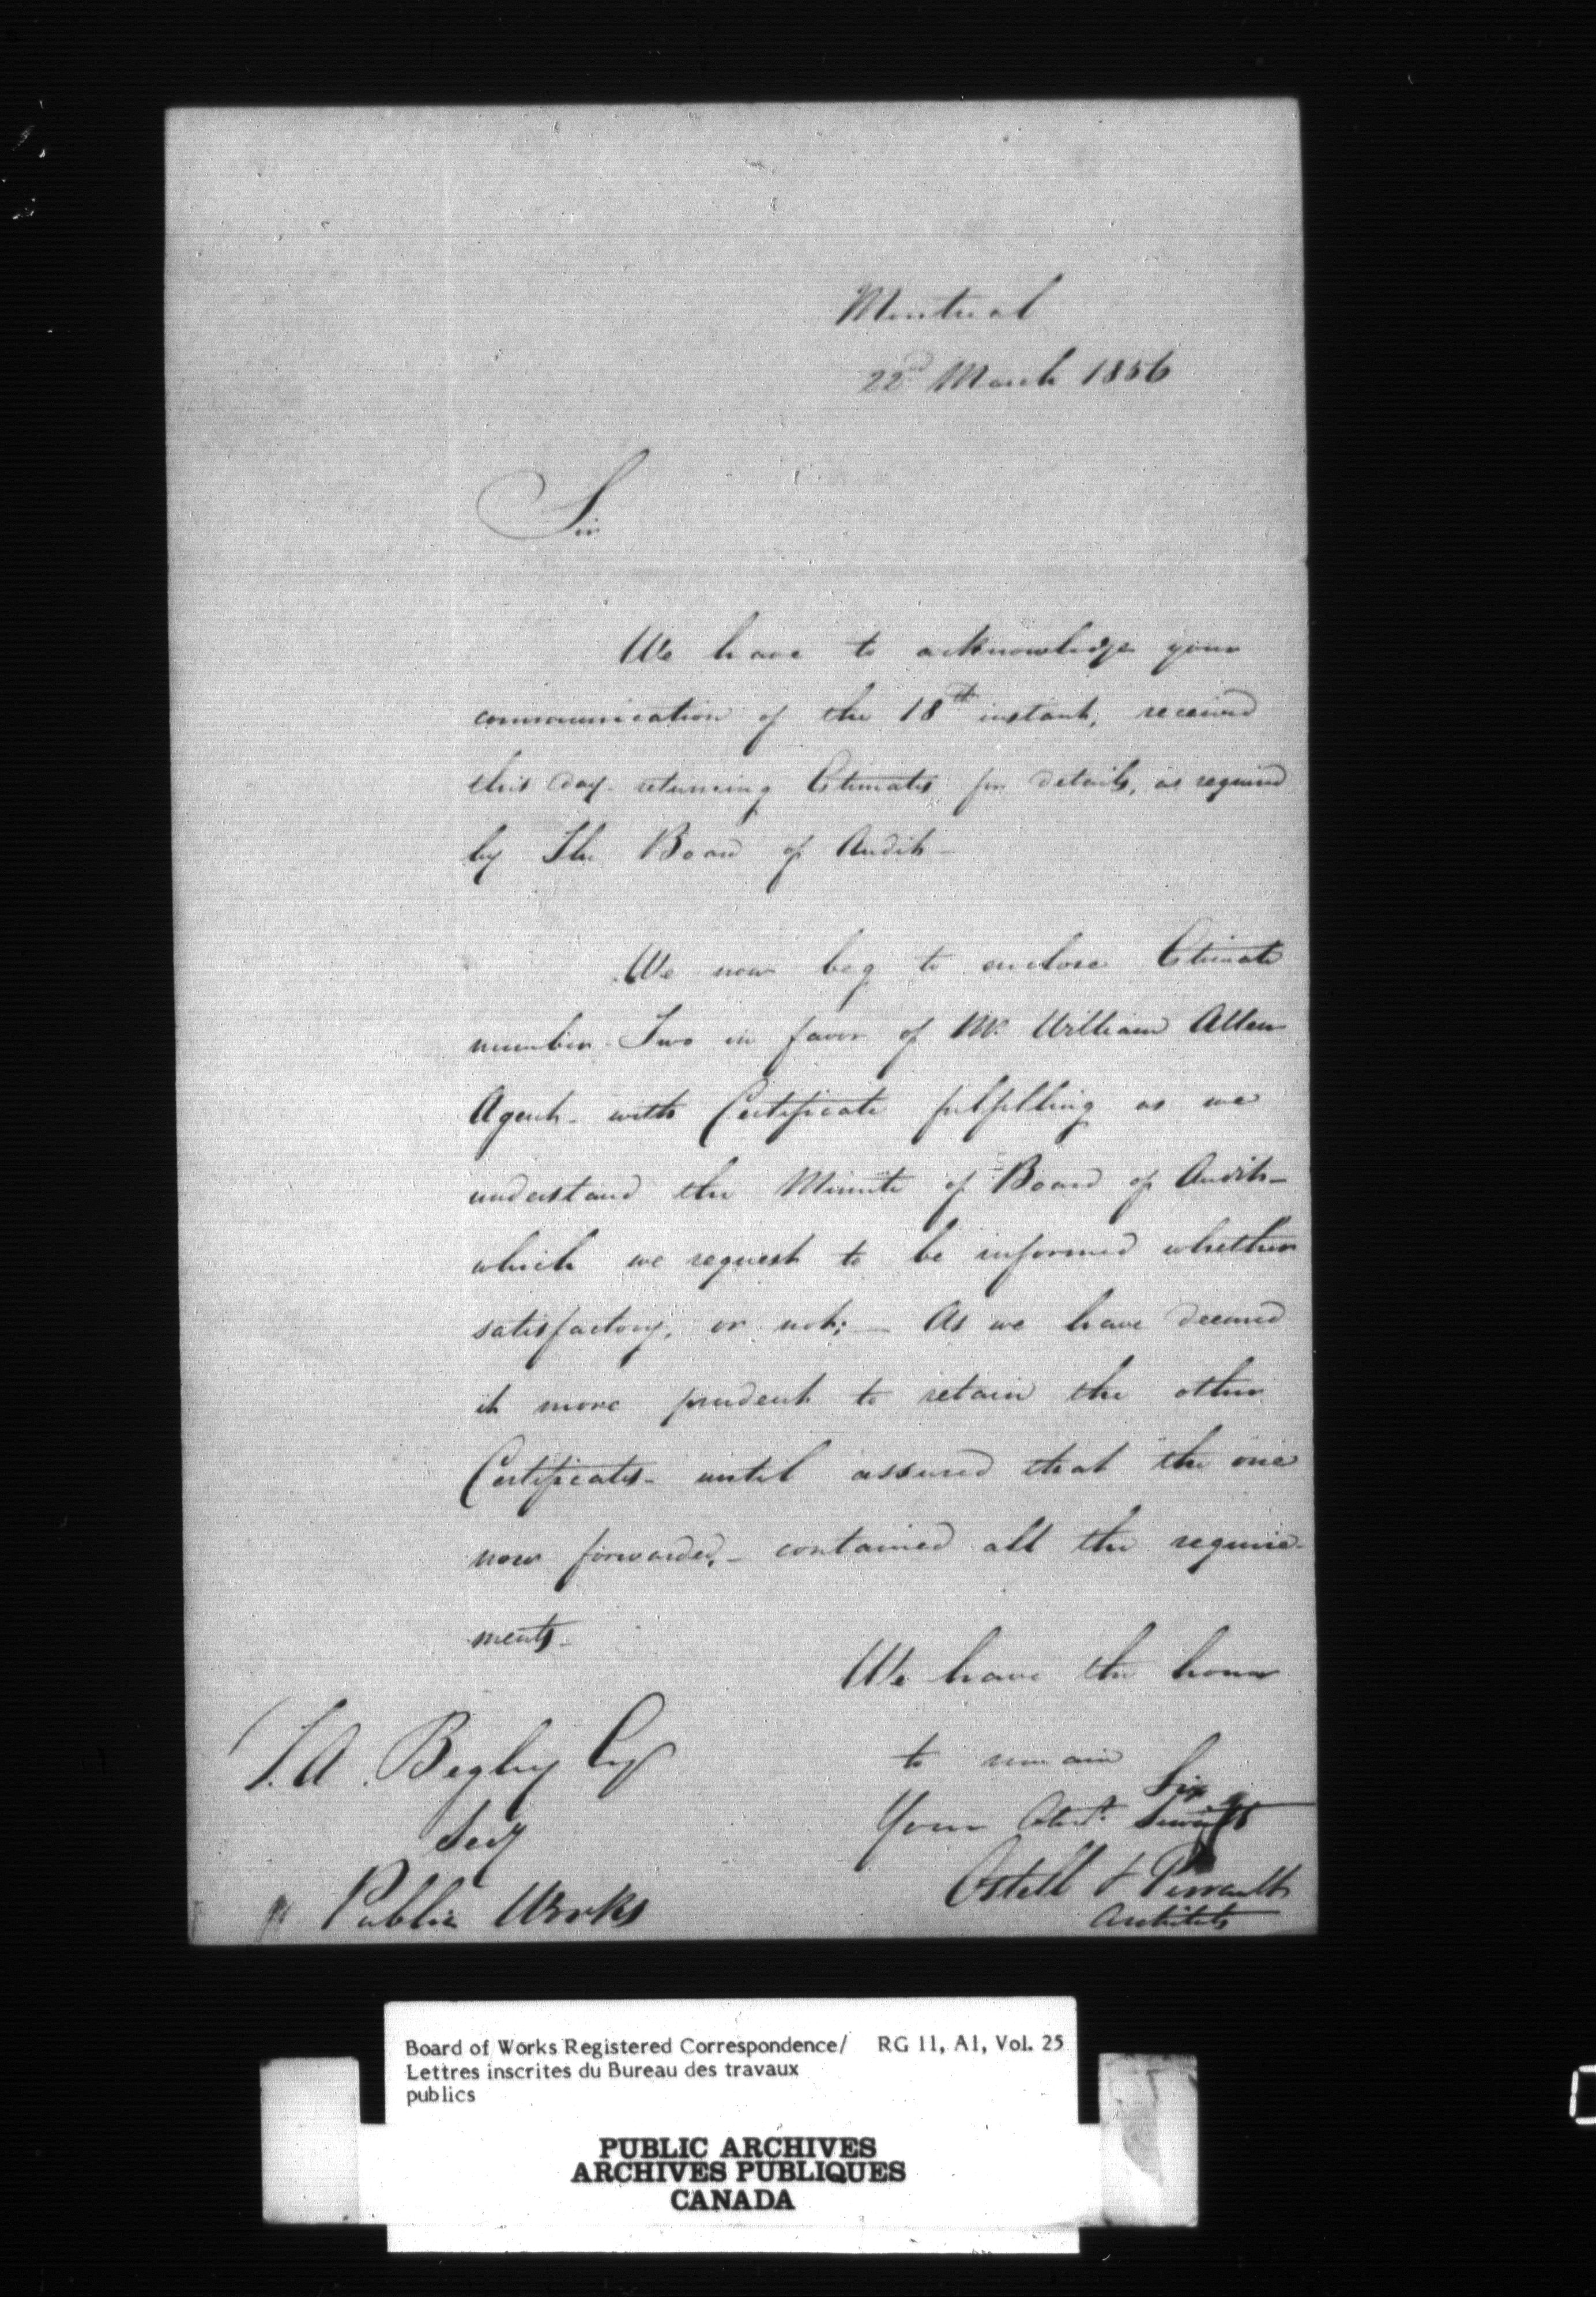 Montreal
22nd March 1856
Sir
We have to acknowledge your
communication of the 18th instant, received
this day - returning Estimates for details, as required
by The Board of Audit -
We now beg to enclose Estimate
number - Two in favor of Mr. William Allen
Agent - with Certificate fulfilling as we
understand the Minute of Board of Audit -
which we request to be informed whether
satisfactory, or not; — As we have deemed
it more prudent to retain the other
Certificates - until assured that the one
now forwarded, - contained all the require-
ments -
We have the honor
to remain
Sir
Your Obedt. Servants
Ostell & Perrault
Architects
T. A. Begley Esq
Secy
Public Works
Board of Works Registered Correspondence/ RG 11, A1, Vol. 25
Lettres inscrites du Bureau des travaux
publics
PUBLIC ARCHIVES
ARCHIVES PUBLIQUES
CANADA